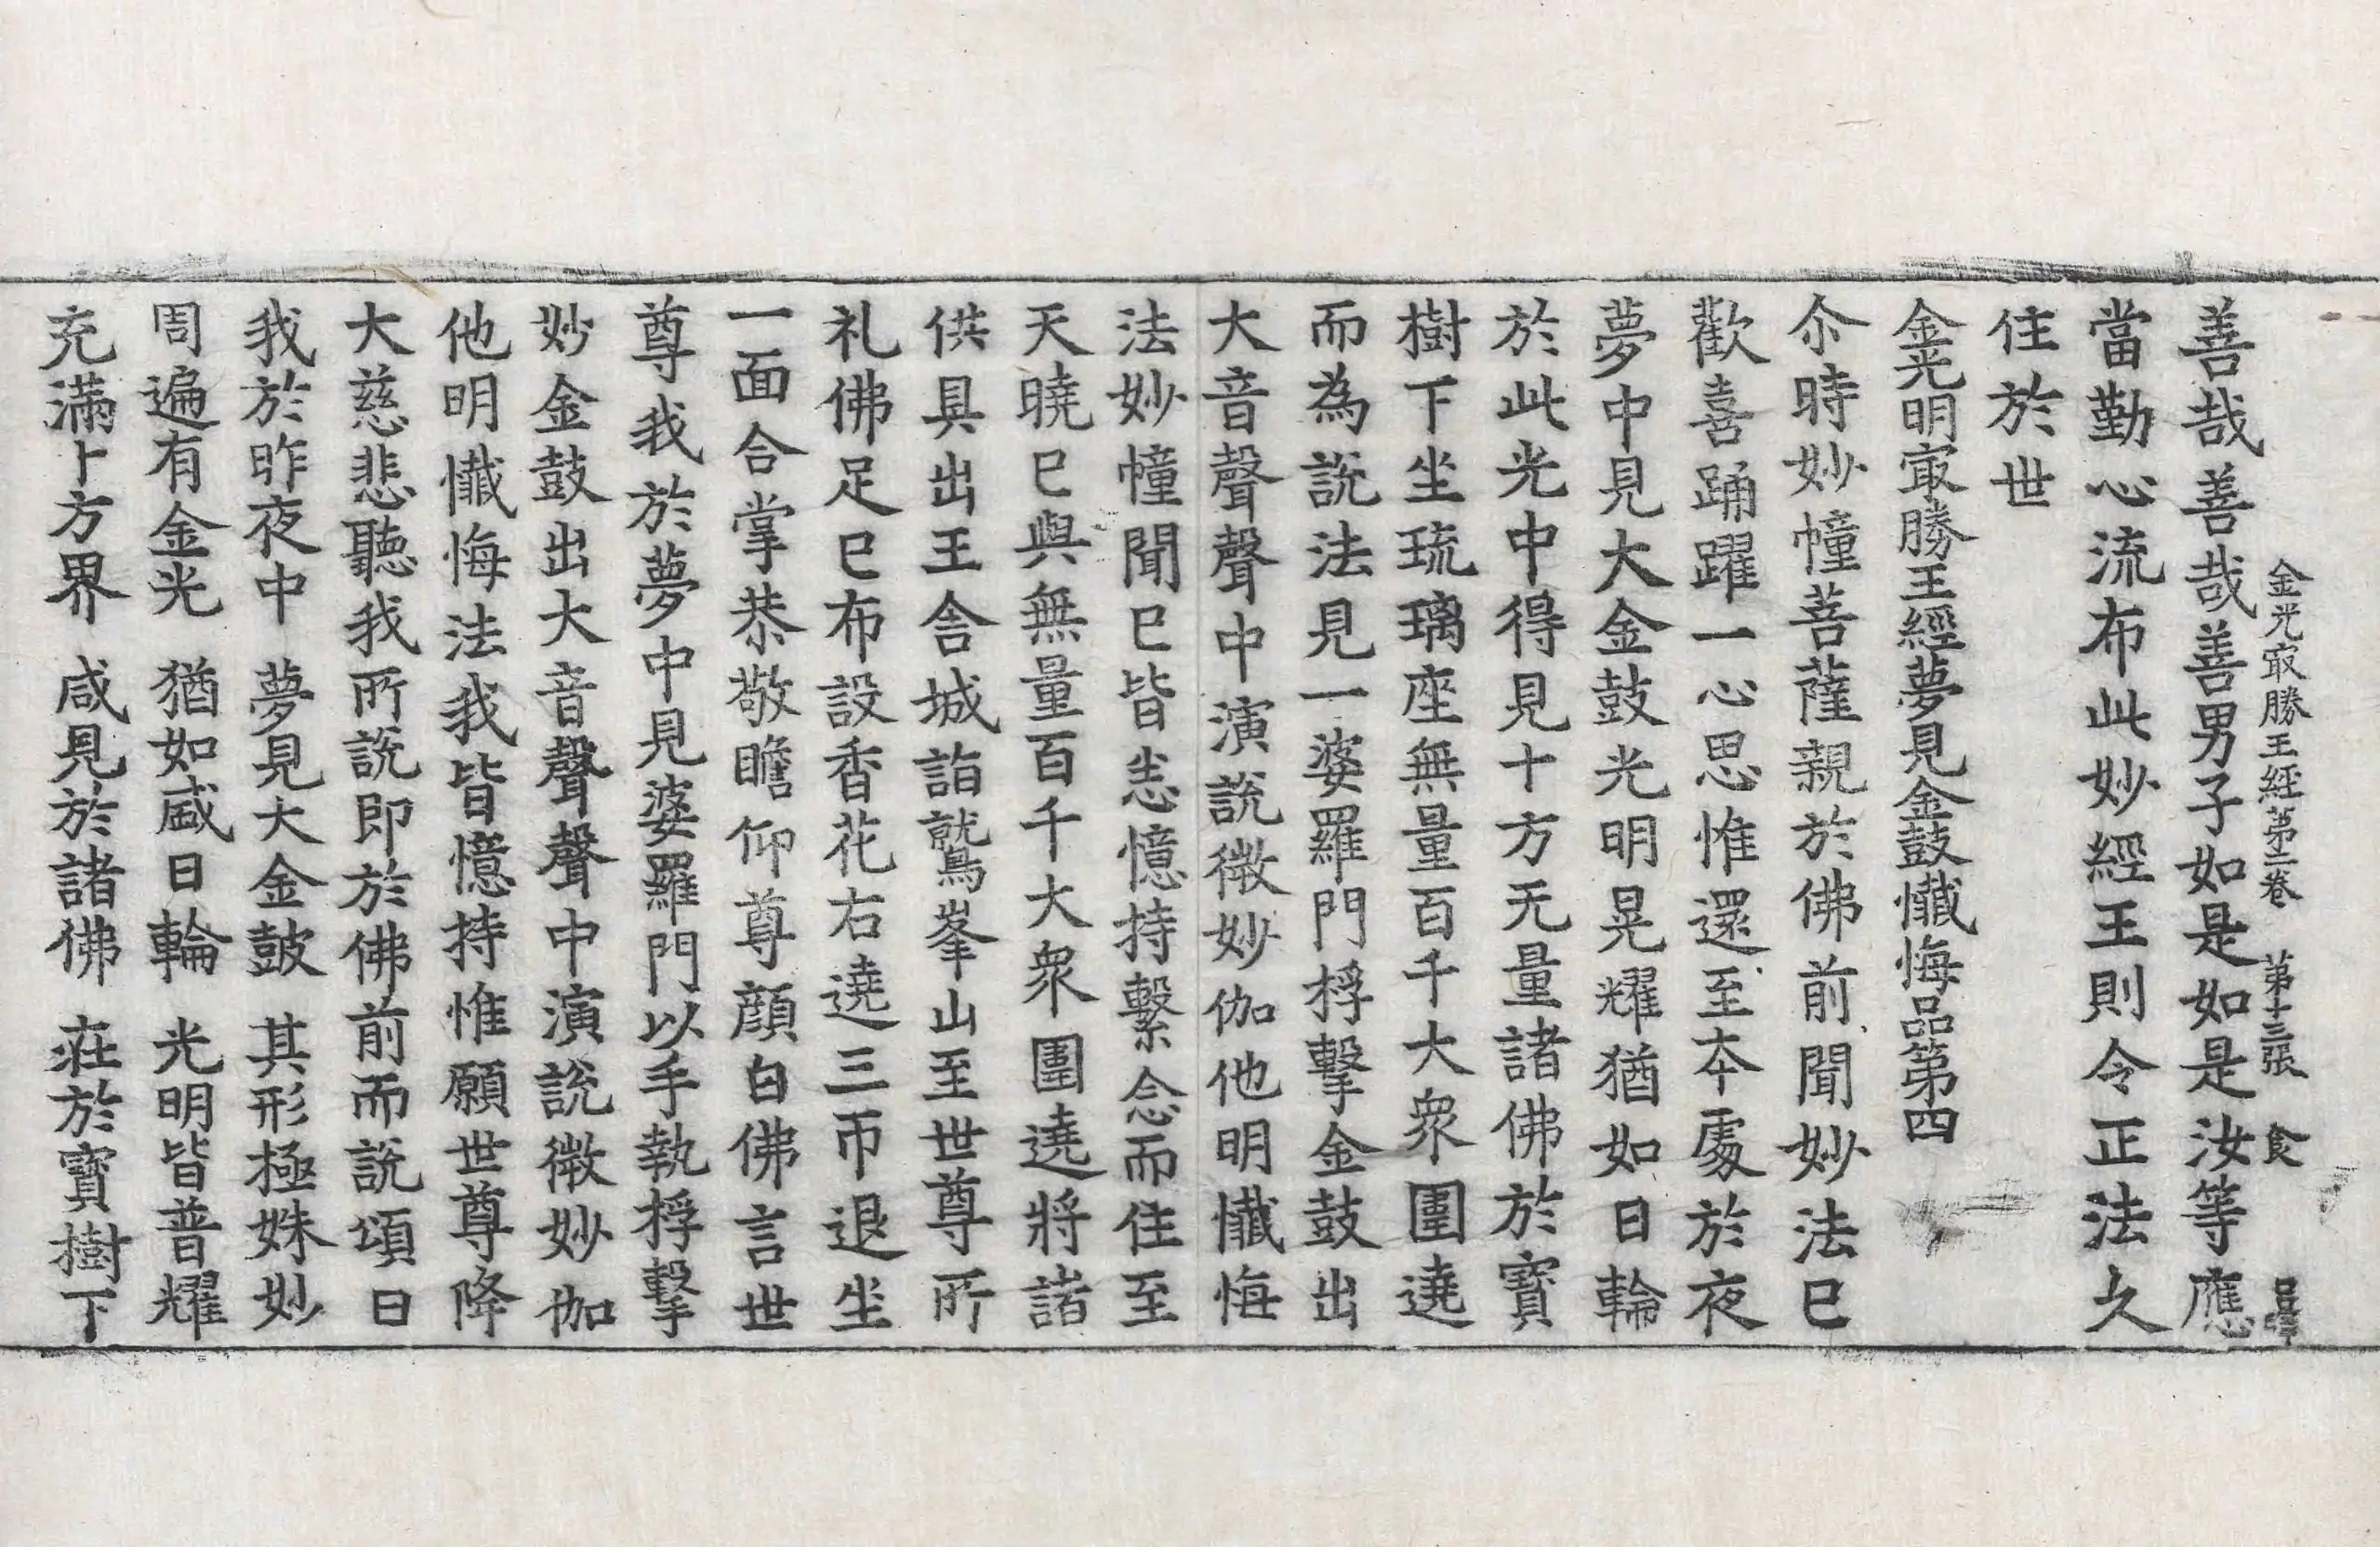 金光㝡勝王経第二卷 第十三張 食
善哉善哉善男子如是如是汝等應
當勤心流布此妙經王則令正法久
住於世
金光明㝡勝王經夢見金鼓懺悔品第四
尒時妙幢菩薩親於佛前聞妙法已
歡喜踊躍一心思惟還至本處於夜
夢中見大金鼓光明晃耀猶如日輪
於此光中得見十方无量諸佛於寶
樹下坐琉璃座無量百千大衆圍遶
而為說法見一婆羅門桴擊金鼓出
大音聲聲中演說微妙伽他明懺悔
法妙幢聞已皆悉憶持繫念而住至
天曉已與無量百千大衆圍遶將諸
供具出王舍城詣鷲峯山至世尊所
礼佛足已布設香花右遶三帀退坐
一面合掌恭敬瞻仰尊顔白佛言世
尊我於夢中見婆羅門以手執桴擊
妙金鼓出大音聲聲中演說微妙伽
他明懺悔法我皆憶持惟願世尊降
大慈悲聽我所說即於佛前而說頌曰
我於昨夜中 夢見大金鼓 其形極姝妙
周遍有金光 猶如盛日輪 光明皆普耀
充滿十方界 咸見於諸佛 在於寶樹下